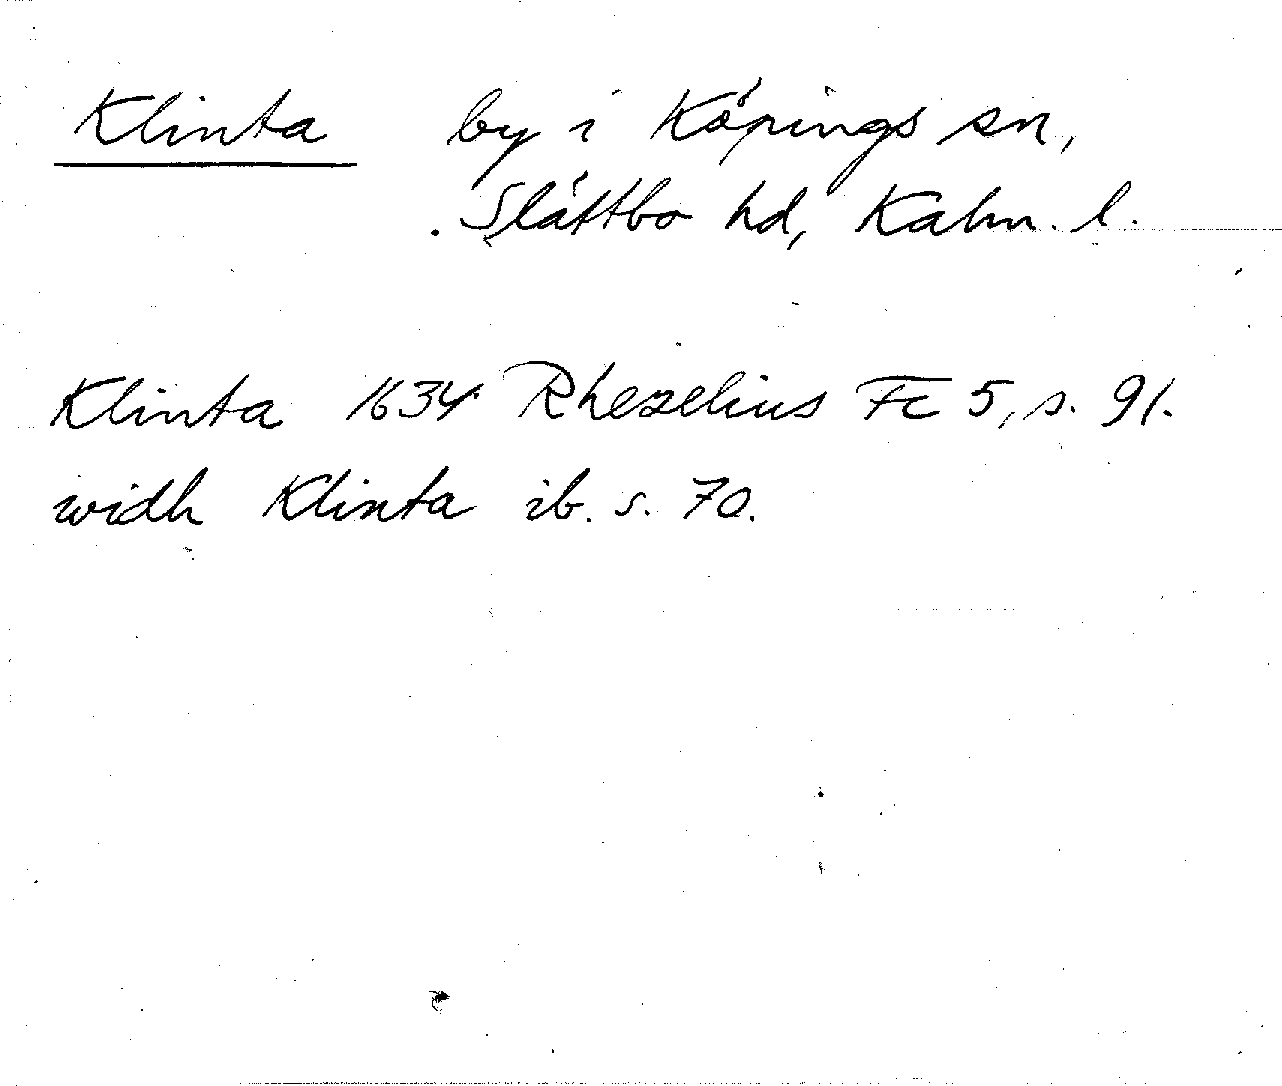 Klinta by i Köpings sn,
Slättbo hd, Kalm. l.
Klinta 1634 Rhezelius Fc 5, s. 91.
widh Klinta ib. s. 70.